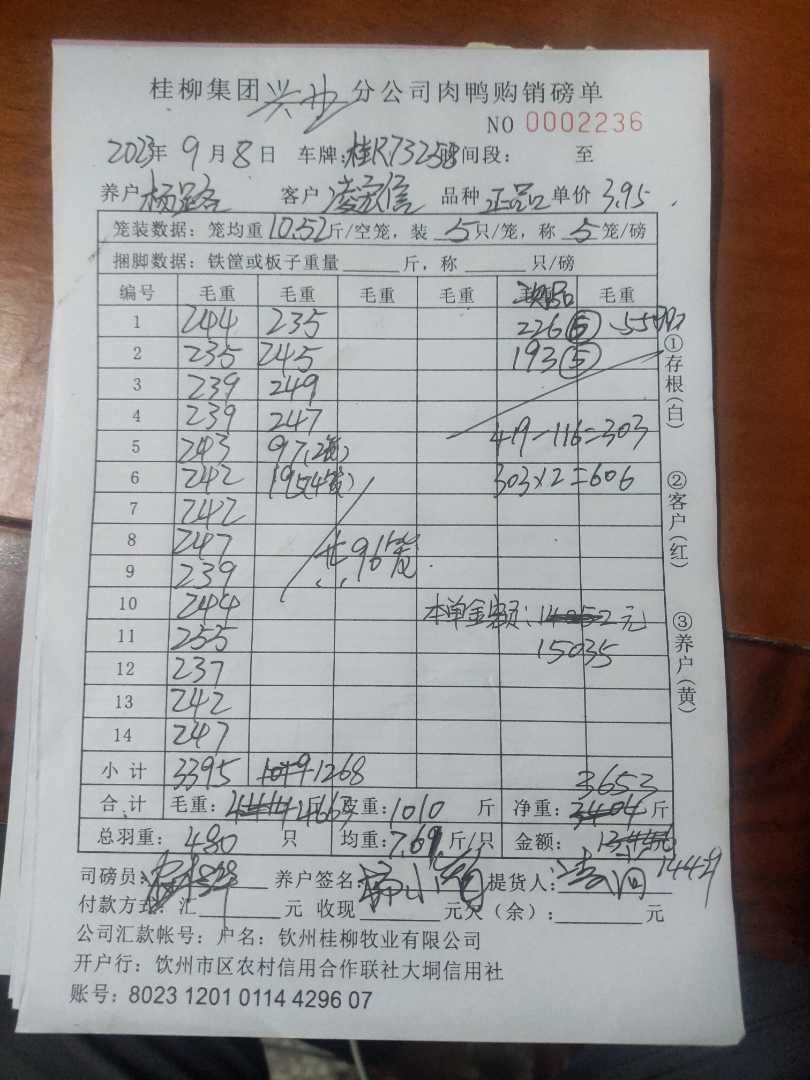 桂柳集团兴业分公司肉鸭购销磅单
NO 0002236
2023年 9月 8日 车牌:桂R73258 时间段: 至
养户 杨 客户 凌家信 品种 正品 单价 3.95
笼装数据：笼均重 10.52 斤/空笼，装 5 只/笼，称 5 笼/磅
捆脚数据：铁筐或板子重量 斤，称 只/磅
编号 毛重 毛重 毛重 毛重 次品 毛重
1 244 235 226⑤
2 235 245 193⑤
3 239 249
4 239 247
5 243 97(2笼) 419-116=303
6 242 195(4笼) 303×2=606
7 242
8 247 共96笼
9 239
10 244 本单金额: 元
11 255 15035
12 237
13 242
14 247
小计 3395 1268 3653
合计 毛重: 4663 皮重: 1010 斤 净重: 3404 斤
总羽重: 480 只 均重: 7.61 斤/只 金额:
14429
司磅员: 养户签名: 提货人:
付款方式: 汇 元 收现 元欠(余): 元
公司汇款帐号: 户名: 钦州桂柳牧业有限公司
开户行: 饮州市区农村信用合作联社大垌信用社
账号: 8023 1201 0114 4296 07
①存根(白)
②客户(红)
③养户(黄)